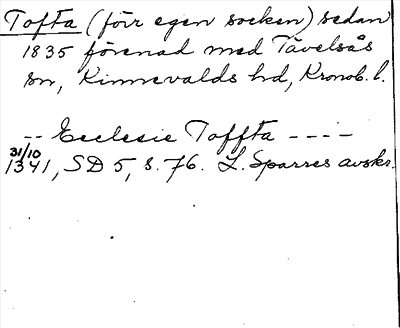 Tofta (förr egen socken) sedan
1835 förenad med Tävelsås
sn, Kinnevalds hd, Kronob. l.
-- Ecclesie Toffta ----
31/10
1341, SD 5, s. 76. L. Sparres avskr.